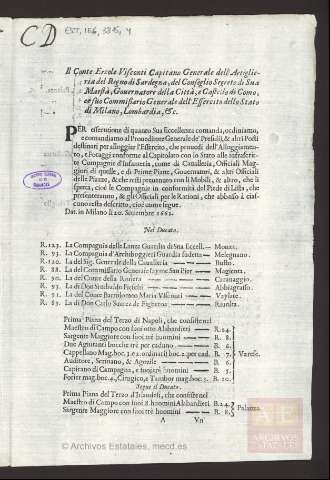 CD
EST, 166, 3815, 4
Il Conte Ercole Visconti Capitano Generale dell'Artiglie-
ria del Regno di Sardegna, del Consiglio Segreto di Sua
Maestà, Governatore della Città, e Castello di Como,
e suo Commissario Generale dell'Essercito dello Stato
di Milano, Lombardia, &c.
PER essecutione di quanto Sua Eccellenza comanda, ordiniamo,
e comandiamo al Proueditore Generale de' Presidij, & altri Posti
destinati per alloggiar l'Essercito, che prouedi dell'Alloggiamen-
to, e Foraggi conforme al Capitolato con lo Stato alle infrascrit-
te Compagnie d'Infanteria, come di Caualleria, Officiali Mag-
giori di quelle, e di Prime Piane, Gouernatori, & altri Officiali
delle Piazze, & che resti prouenuto con li Mobili, & altro, che li
spetta, cioè le Compagnie in conformità del Piede di Lista, che
presenteranno, & gli Officiali per le Rationi, che abbasso à cias-
cuno resta descritto, cioè come segue.
Dat. in Milano li 20. Settembre 1662.
Nel Ducato.
R. 123. La Compagnia delle Lanze Guardia di Sua Eccell.— Monza.
R. 93. La Compagnia d'Archibuggieri Guardia sudetta— Melegnano.
R. 120. La del Sig. Generale della Caualleria — Busto.
R. 88. La del Commissario Generale
R. 90. La di Don Carlo della Riniera — Carauaggio.
R. 93. La di Don
R. 91. La del Conte Bartolomeo Maria Visconti — Vaylate.
R. 86. La di Don Carlo Suarez de Figheroa —
Prima Piana del Terzo di Napoli, che consiste nel
Maestro di Campo con suoi otto Alabardieri R. 24.
Sargente Maggiore con suoi trè huomini — R. 8.
Due Agiutanti bocche trè per caduno — R. 6.
Cappellano Mag. boc. 3. e 2. ordinarij boc. 2. per cad. R. 7. Varese.
Auditore, Scriuano, & Agozile — R. 6.
Capitano di Campagna, e suoi sei huomini — R. 5.
Forier mag. boc. 4., Cirugico, e Tambor mag. boc. 3. R. 10.
Segue il Ducato.
Prima Piana del Terzo d'Irlandesi, che consiste nel
Maestro di Campo con suoi 8. huomini Alabardieri R. 24.
Sargente Maggiore con suoi trè huomini — R. 8. Palanza.
A Vn'
ARCHIVOS
ESTATALES
© Archivos Estatales, mecd.es